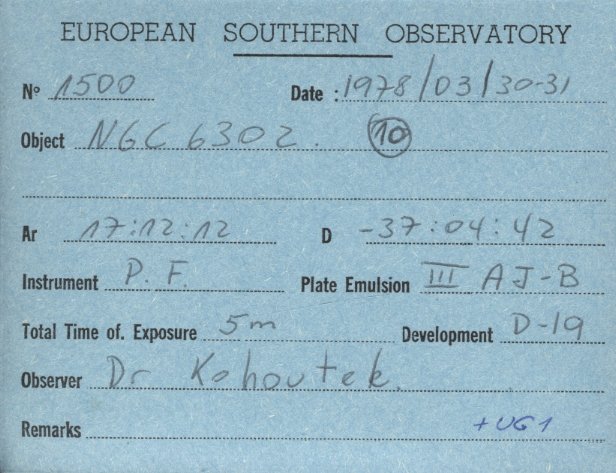 EUROPEAN SOUTHERN OBSERVATORY
Nº 1500 Date : 1978/03/30-31
Object NGC 6302. 10
Ar 17:12:12 D -37:04:42
Instrument P. F. Plate Emulsion III AJ-B
Total Time of. Exposure 5m Development D-19
Observer Dr Kohoutek.
Remarks +UG1